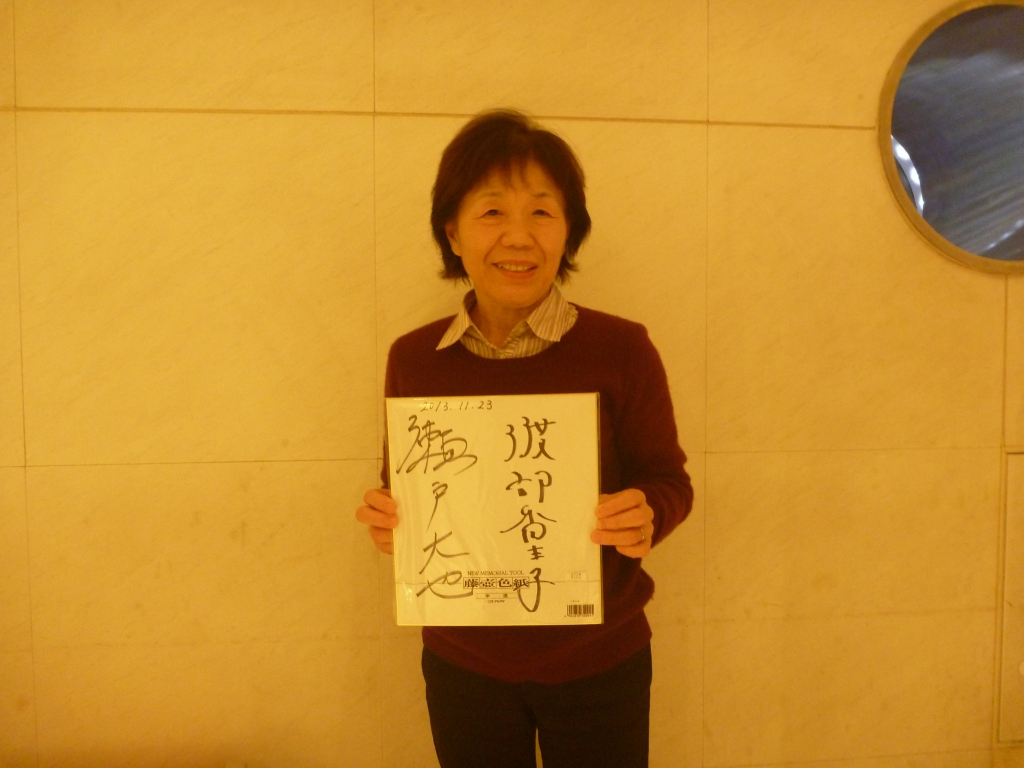 2013.11.23
渡部香生子
瀬戸大也
NEW MEMORIAL TOOL
色紙